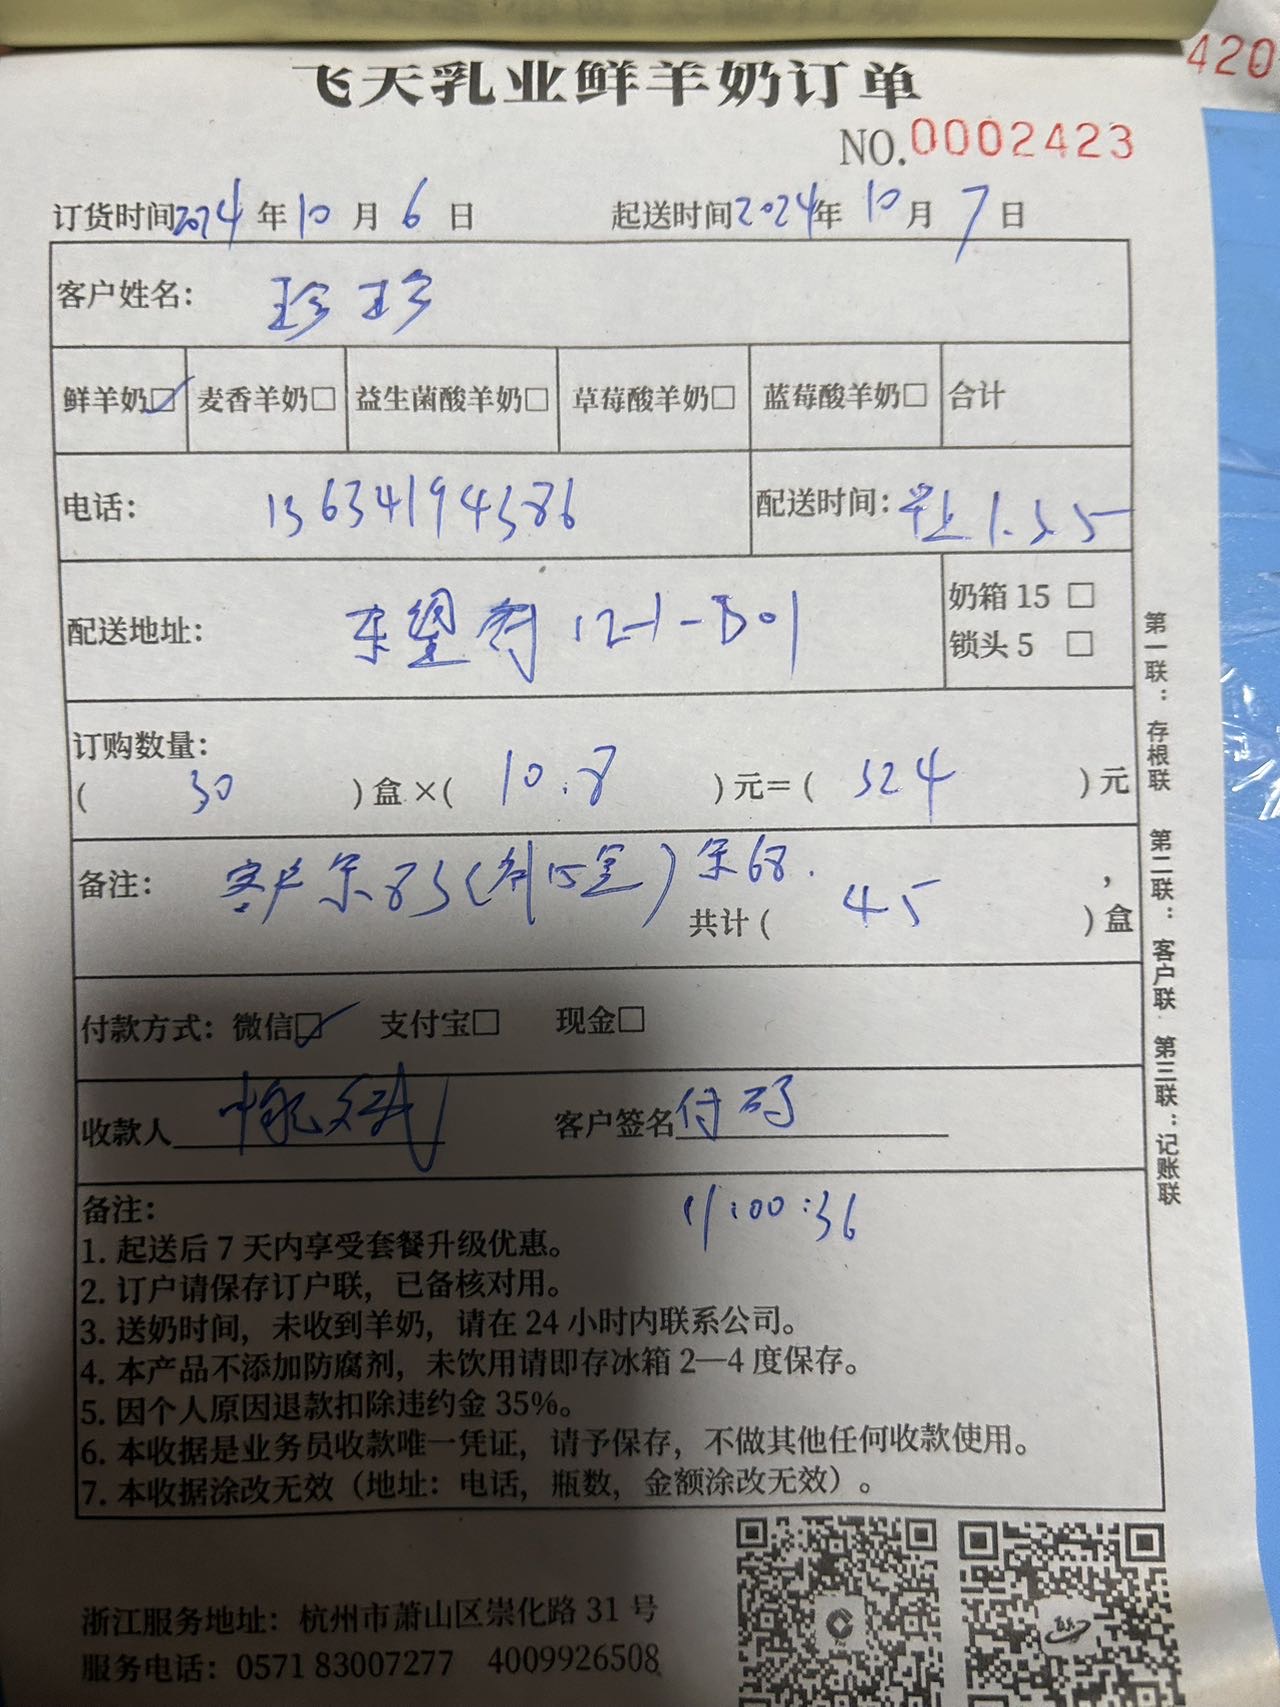 420
飞天乳业鲜羊奶订单
NO.0002423
订货时间2024年10月6日 起送时间2024年10月7日
客户姓名: 珍珍
鲜羊奶☑ 麦香羊奶□ 益生菌酸羊奶□ 草莓酸羊奶□ 蓝莓酸羊奶□ 合计
电话: 13634194386 配送时间: 早上1.3.5
配送地址: 东望府12-1-501
奶箱 15 □
锁头 5 □
订购数量:
( 30 )盒×( 10.8 )元=( 324 )元
备注: 客户余83(剩15盒)余68.
共计( 45 )盒
付款方式: 微信☑ 支付宝□ 现金□
收款人 客户签名 付码
11:00:36
备注:
1. 起送后 7 天内享受套餐升级优惠。
2. 订户请保存订户联，已备核对用。
3. 送奶时间，未收到羊奶，请在 24 小时内联系公司。
4. 本产品不添加防腐剂，未饮用请即存冰箱 2—4 度保存。
5. 因个人原因退款扣除违约金 35%。
6. 本收据是业务员收款唯一凭证，请予保存，不做其他任何收款使用。
7. 本收据涂改无效（地址：电话，瓶数，金额涂改无效）。
第一联：存根联 第二联：客户联 第三联：记账联
浙江服务地址：杭州市萧山区崇化路 31 号
服务电话：0571 83007277 4009926508